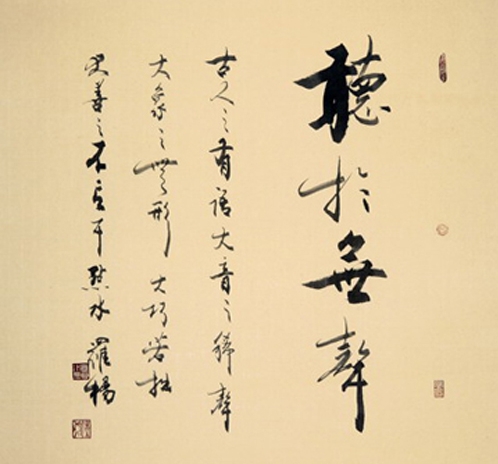 聽於無聲
古人之有語大音之稀聲
大象之無形 大巧若拙
善之不言于點水 羅楊